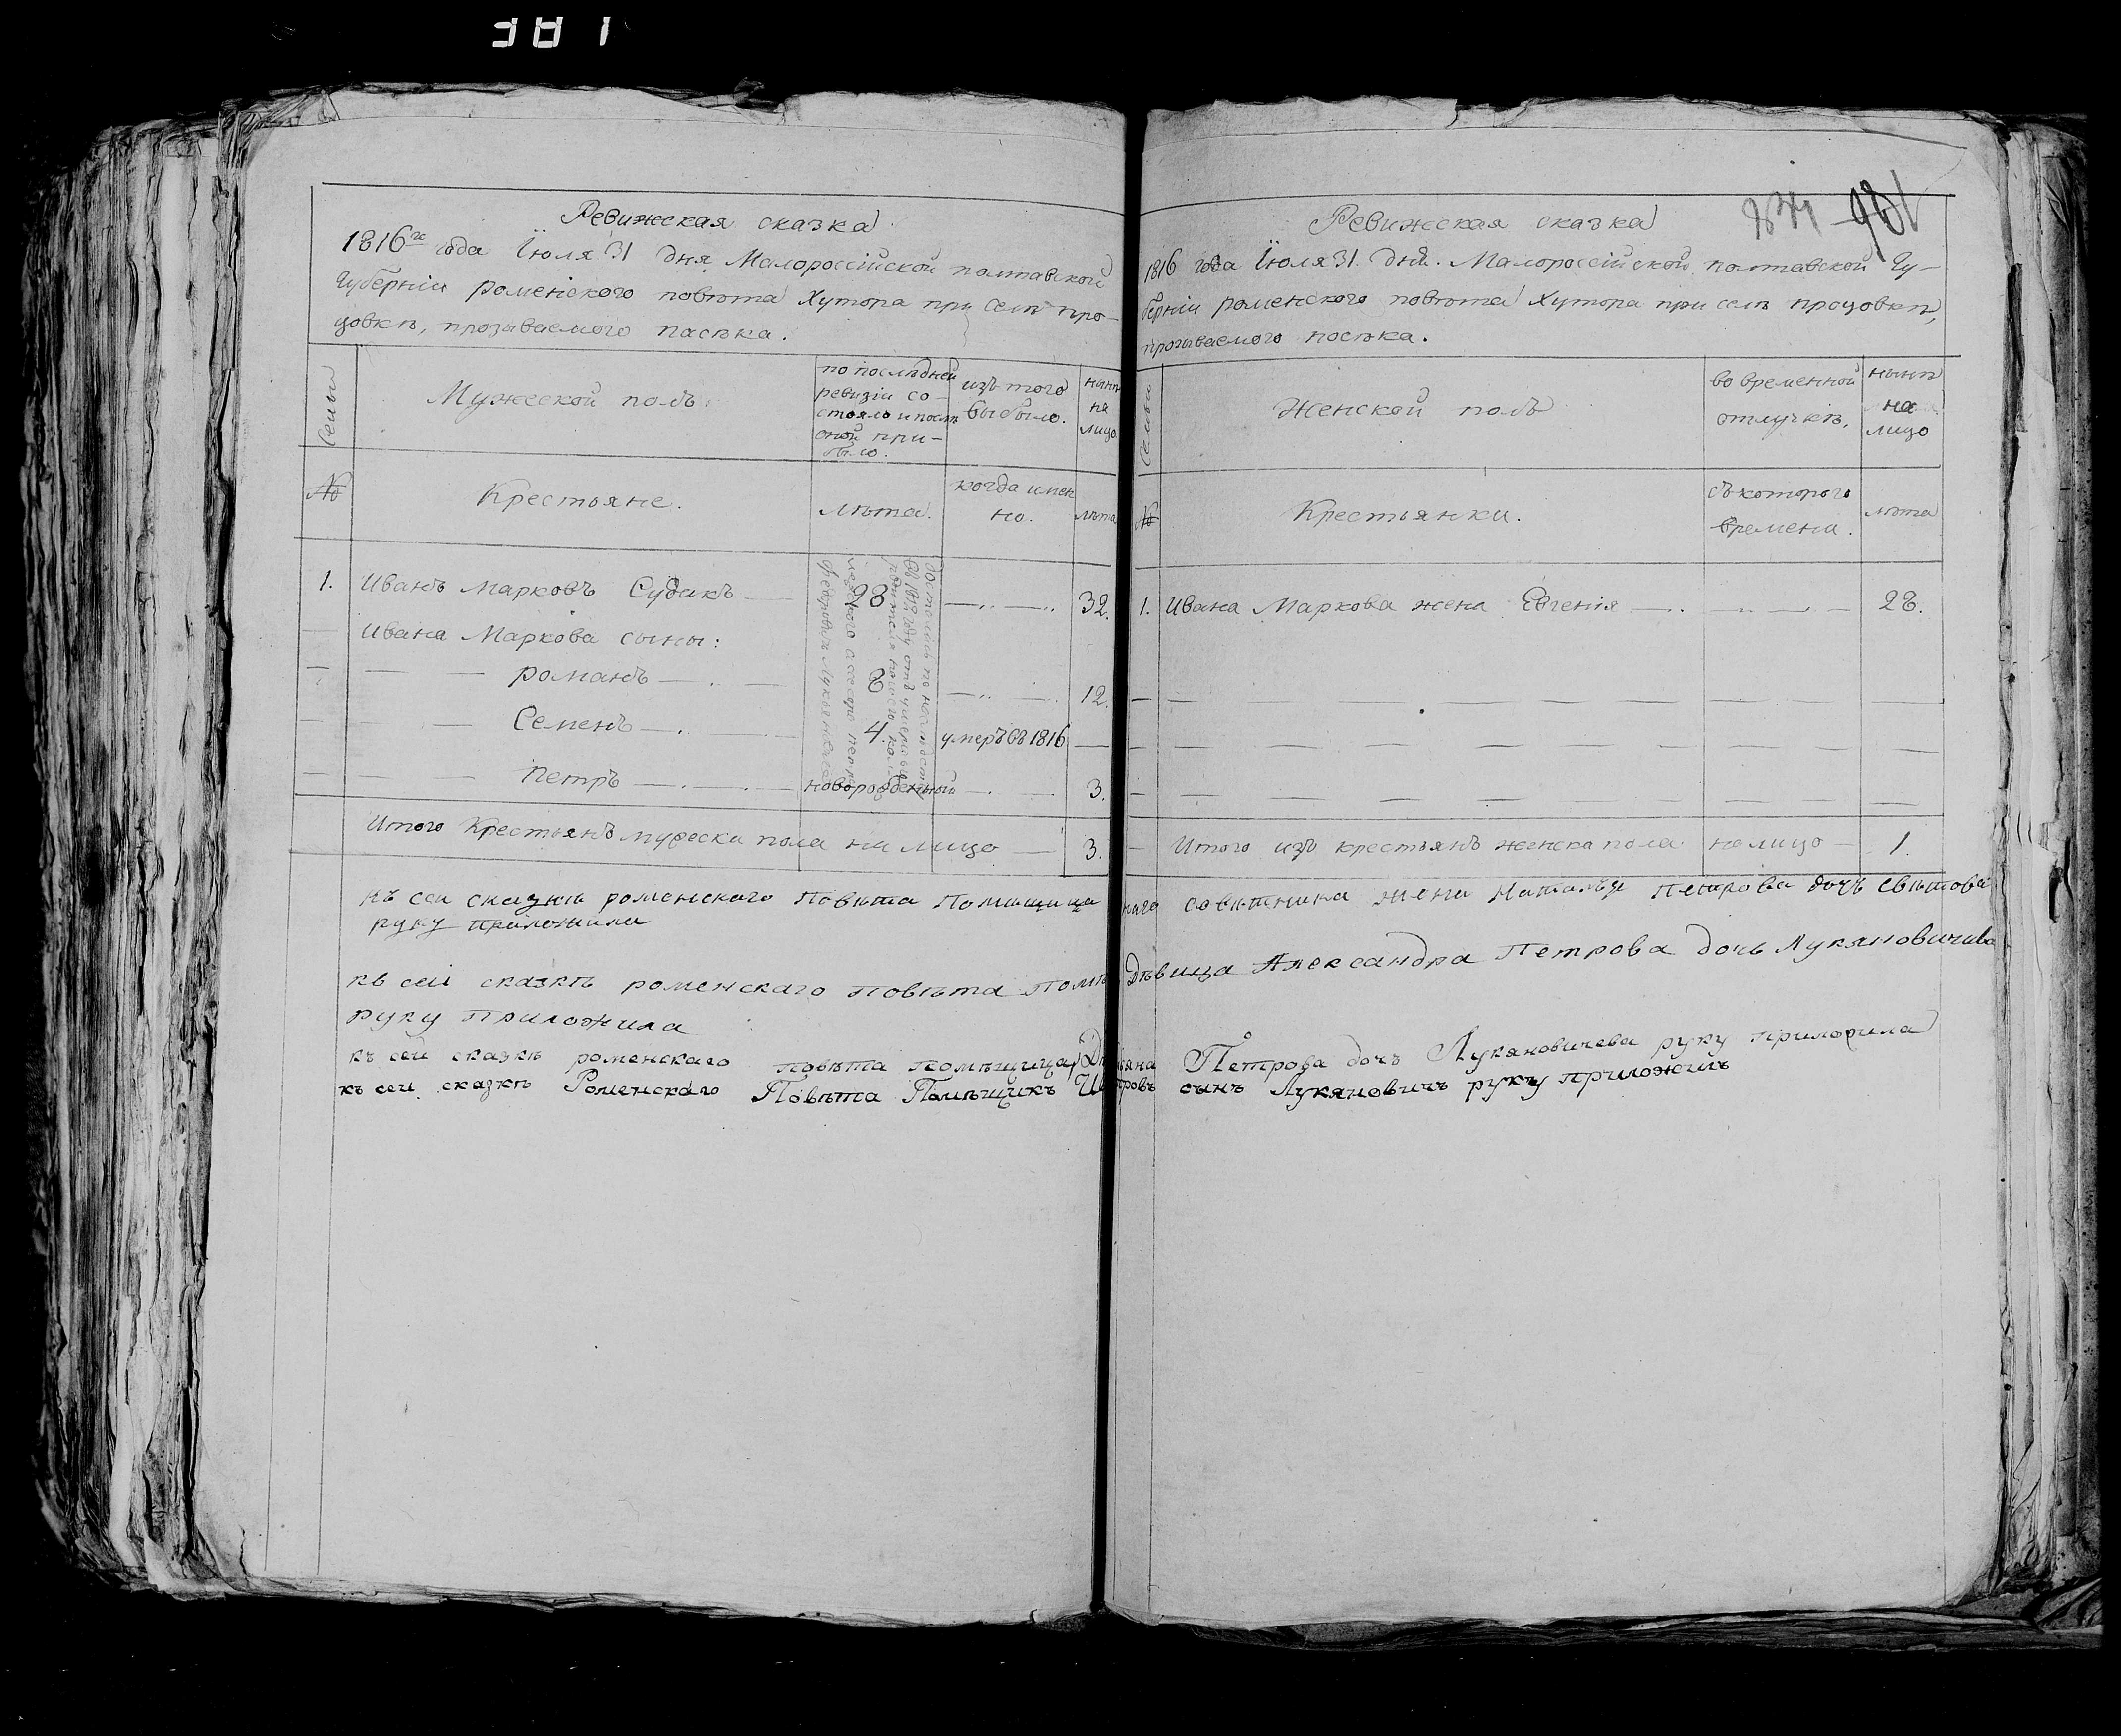 381
Ревижская сказка
1816го года Іюля 31 дня Малороссійской полтавской
Губерніи роменского повѣта Хутора при селѣ про-
цовкѣ, прозываемого пасѣка.
Семьи
Мужеской полъ.
по последней
ревизіи со-
стояло и послѣ
оной при-
было.
изъ того
выбыло.
нынѣ
на
лицо
№
Крестьяне.
лѣта.
когда имен
но.
лѣта
1. Иванъ Марковъ Судакъ 28 32.
Ивана Маркова сыны:
романъ 8 12.
Семенъ 4. умеръ въ 1816
Петръ новорожденный 3.
достались по наследству
въ 1812 году отъ умерша
Федоровича Лукьяновича
Итого Крестьянъ мужеска пола на лицо 3.
Ревижская сказка
834 981
1816 года Іюля 31 дня. Малороссійской полтавской Гу-
берніи роменского повѣта Хутора при селѣ процовкѣ,
прозываемого посѣка.
Семьи
Женской полъ
во временной
отлучкѣ.
нынѣ
на
лицо
№
Крестьянки.
съ которого
времени.
лѣта
1. Ивана Маркова жена Евгенія 28.
Итого изъ крестьянъ женска пола на лицо 1.
къ сей сказкѣ роменского Повѣта Помѣщица совѣтника жена Наталья Петрова дочь
руку приложила
къ сей сказкѣ роменскаго повѣта Дѣвица Александра Петрова дочь Лукяновичева
руку Приложила
къ сей сказкѣ роменскаго повѣта помѣщица Петрова дочь Лукяновичева руку приложила
къ сей сказкѣ Роменскаго Повѣта Помѣщикъ сынъ Лукяновичъ руку приложилъ